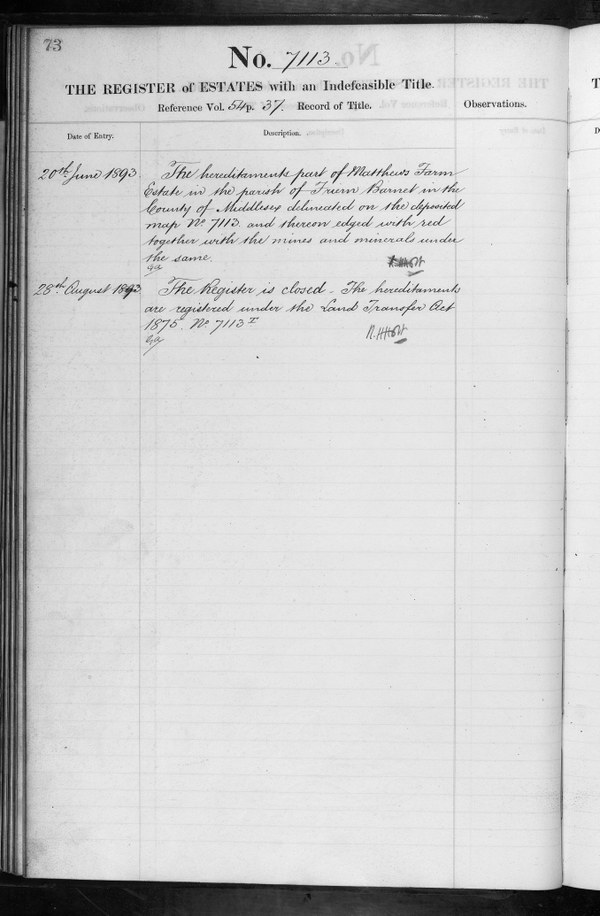 73
No. 7113.
THE REGISTER of ESTATES with an Indefeasible Title.
Reference Vol. 54 p. 37. Record of Title.
Observations.
Date of Entry.
Description.
20th June 1893.
The hereditaments part of Matthews Farm
Estate in the parish of Friern Barnet in the
County of Middlesex delineated on the deposited
map No. 7113. and thereon edged with red
together with the mines and minerals under
the same.
28th August 1893
The Register is closed - The hereditaments
are registered under the Land Transfer Act
1875. No. 7113